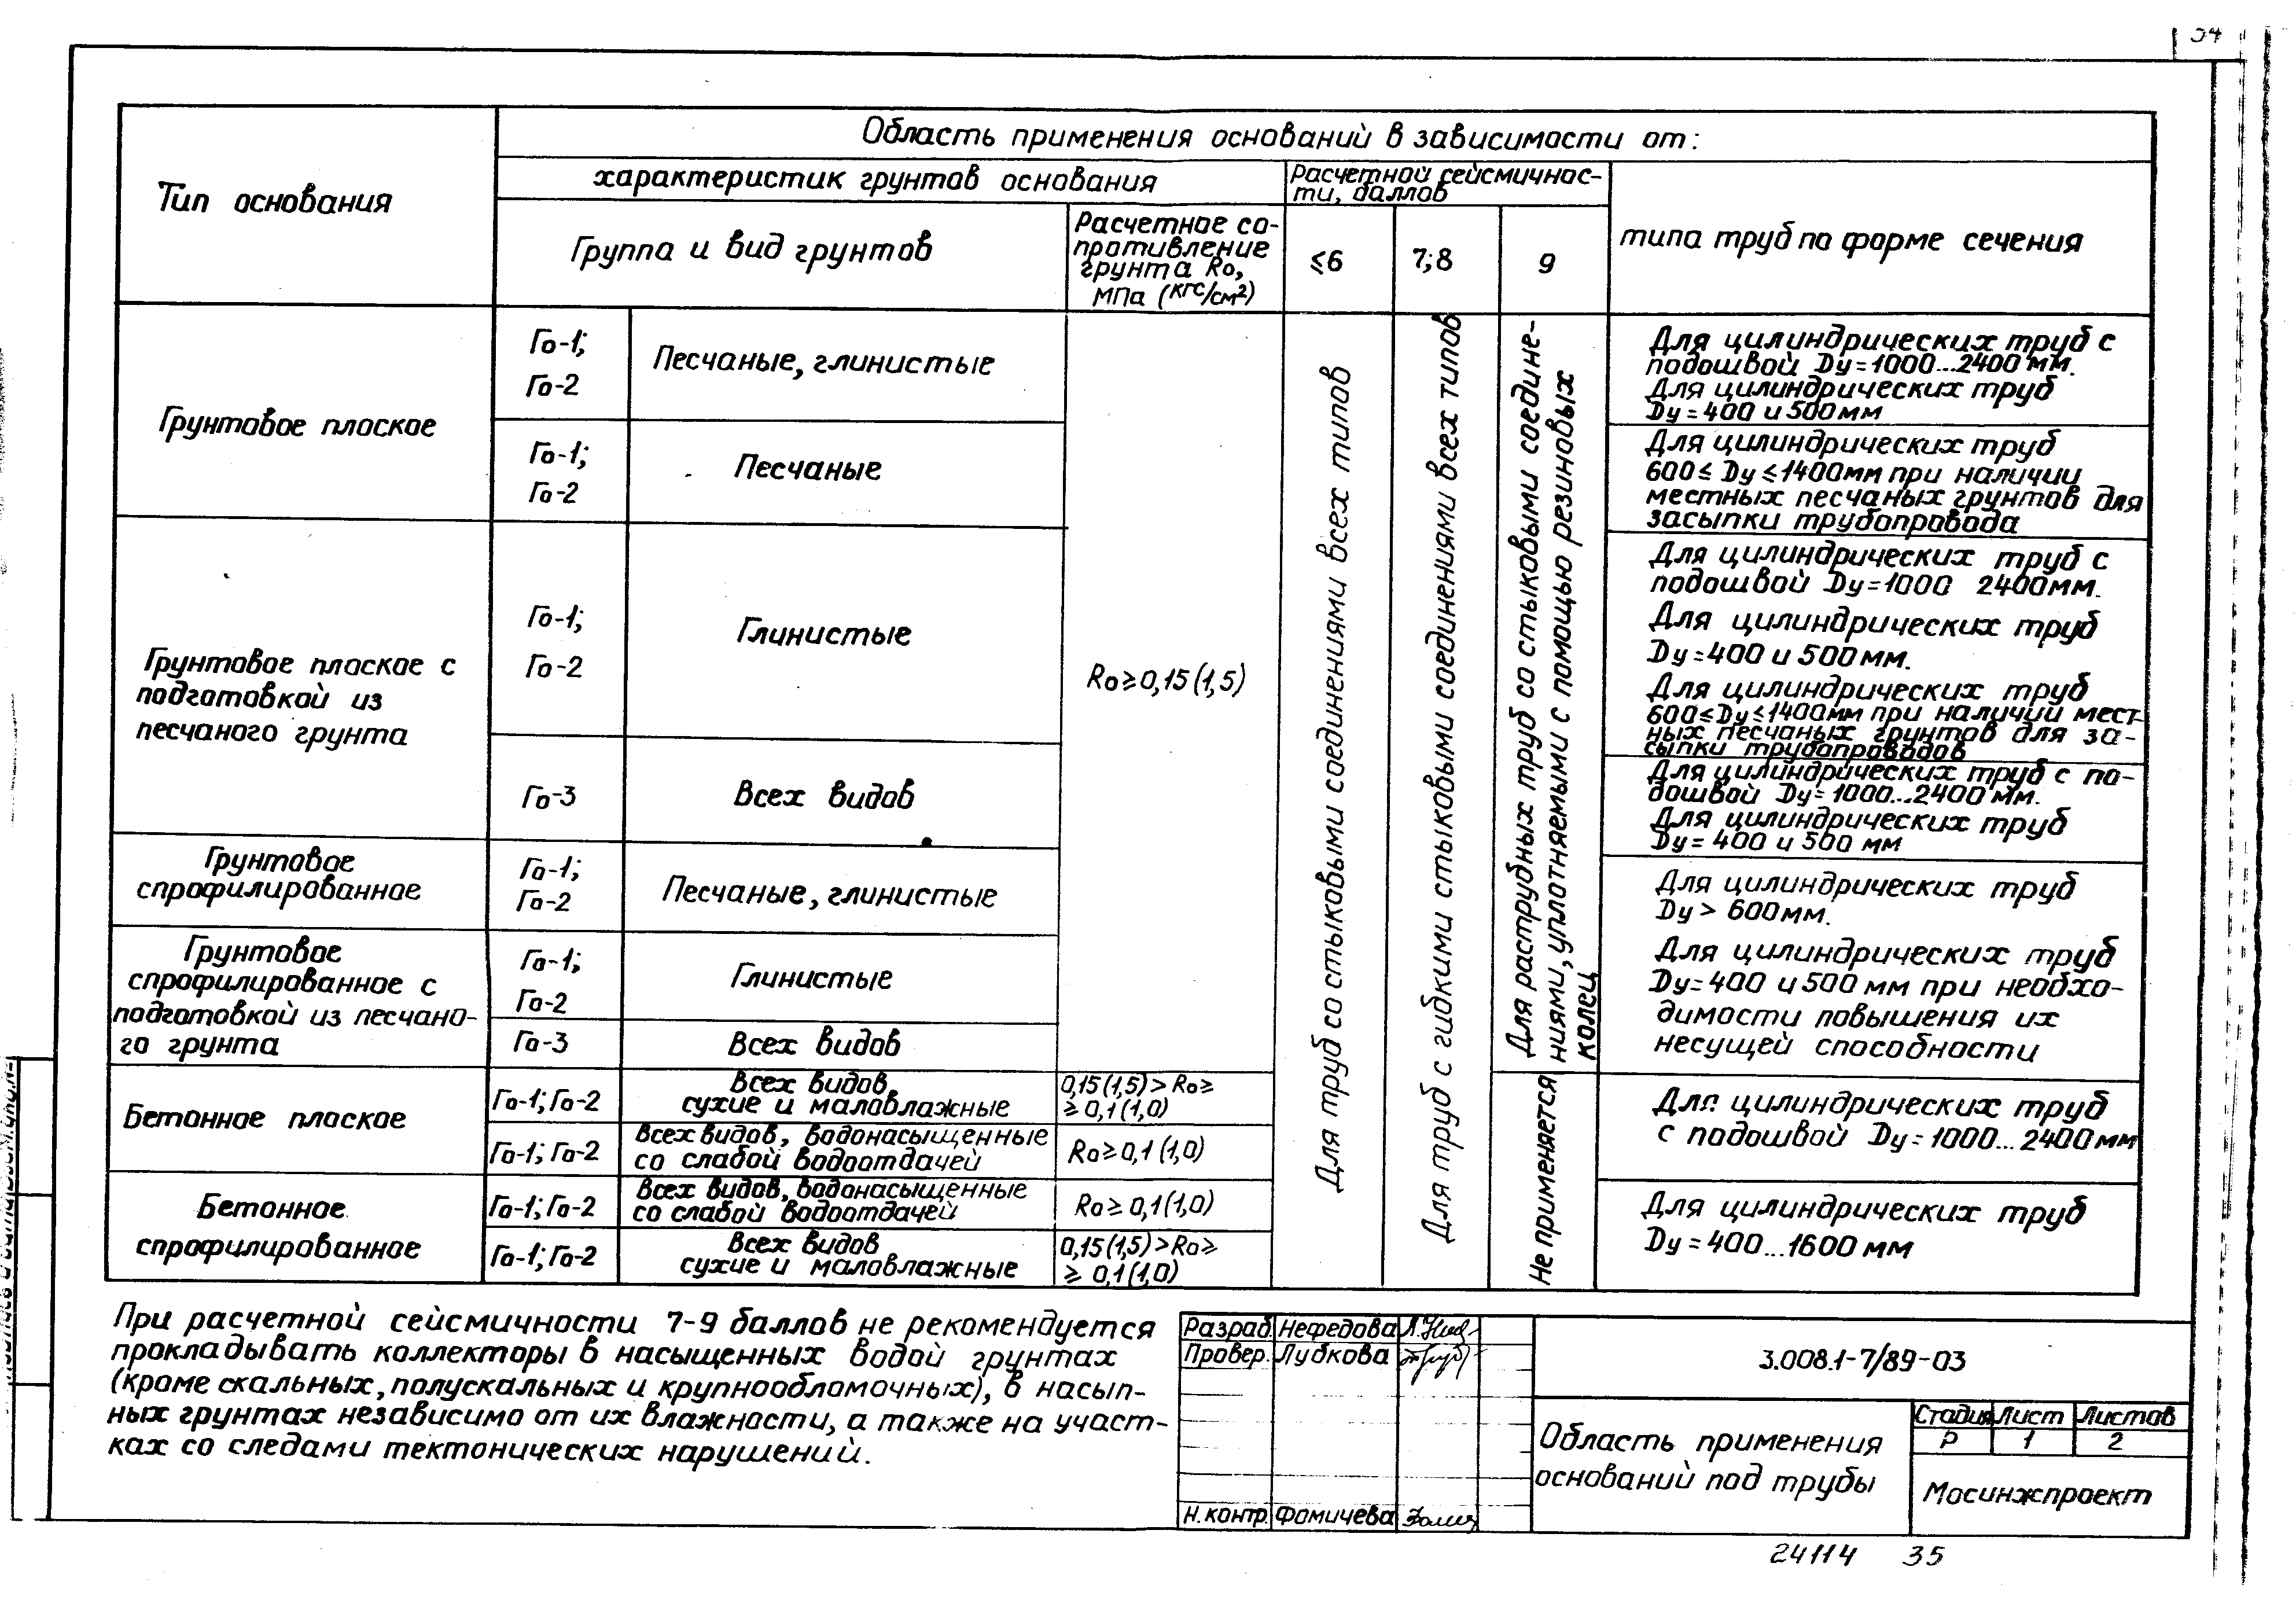 34
Тип основания
Область применения оснований в зависимости от:
характеристик грунтов основания
Расчетной сейсмичнос-
ти, баллов
типа труб по форме сечения
Группа и вид грунтов
Расчетное со-
противление
грунта Rо,
МПа (кгс/см²)
≤6
7;8
9
Грунтовое плоское
Го-1;
Го-2
Песчаные, глинистые
Го-1;
Го-2
Песчаные
Грунтовое плоское с
подготовкой из
песчаного грунта
Го-1;
Го-2
Глинистые
Го-3
Всех видов
Грунтовое
спрофилированное
Го-1;
Го-2
Песчаные, глинистые
Грунтовое
спрофилированное с
подготовкой из песчано-
го грунта
Го-1;
Го-2
Глинистые
Го-3
Всех видов
Rо≥0,15(1,5)
Бетонное плоское
Го-1; Го-2
Всех видов
сухие и маловлажные
0,15(1,5)>Rо≥
≥0,1(1,0)
Го-1; Го-2
Всех видов, водонасыщенные
со слабой водоотдачей
Rо≥0,1(1,0)
Бетонное
спрофилированное
Го-1; Го-2
Всех видов, водонасыщенные
со слабой водоотдачей
Rо≥0,1(1,0)
Го-1; Го-2
Всех видов
сухие и маловлажные
0,15(1,5)>Rо≥
≥0,1(1,0)
Для труб со стыковыми соединениями всех типов
Для труб с гибкими стыковыми соединениями всех типов
Для раструбных труб со стыковыми соедине-
ниями, уплотняемыми с помощью резиновых
колец
Не применяется
Для цилиндрических труб с
подошвой Dу=1000...2400мм.
Для цилиндрических труб
Dу=400 и 500мм
Для цилиндрических труб
600≤Dу≤1400мм при наличии
местных песчаных грунтов для
засыпки трубопровода
Для цилиндрических труб с
подошвой Dу=1000 2400мм.
Для цилиндрических труб
Dу=400 и 500мм.
Для цилиндрических труб
600≤Dу≤1400мм при наличии мест-
ных песчаных грунтов для за-
сыпки трубопроводов
Для цилиндрических труб с по-
дошвой Dу=1000...2400мм.
Для цилиндрических труб
Dу=400 и 500 мм
Для цилиндрических труб
Dу>600мм.
Для цилиндрических труб
Dу=400 и 500 мм при необхо-
димости повышения их
несущей способности
Для цилиндрических труб
с подошвой Dу=1000...2400мм
Для цилиндрических труб
Dу=400...1600мм
При расчетной сейсмичности 7-9 баллов не рекомендуется
прокладывать коллекторы в насыщенных водой грунтах
(кроме скальных, полускальных и крупнообломочных), в насып-
ных грунтах независимо от их влажности, а также на участ-
ках со следами тектонических нарушений.
Разраб. Нефедова
Провер. Лубкова
Н.контр. Фомичева
3.008.1-7/89-03
Область применения
оснований под трубы
Стадия Лист Листов
Р 1 2
Мосинжпроект
24114 35